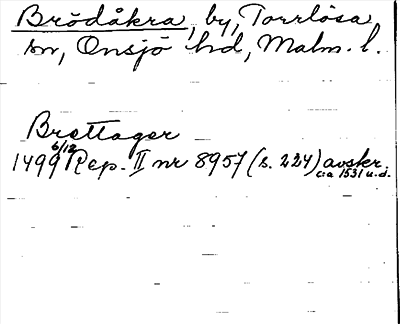 Brödåkra, by, Torrlösa
sn, Onsjö hd, Malm. l.
Brettager
1499 6/12 Rep. II nr 8957 (s. 224) avskr.
c:a 1531 u.d.